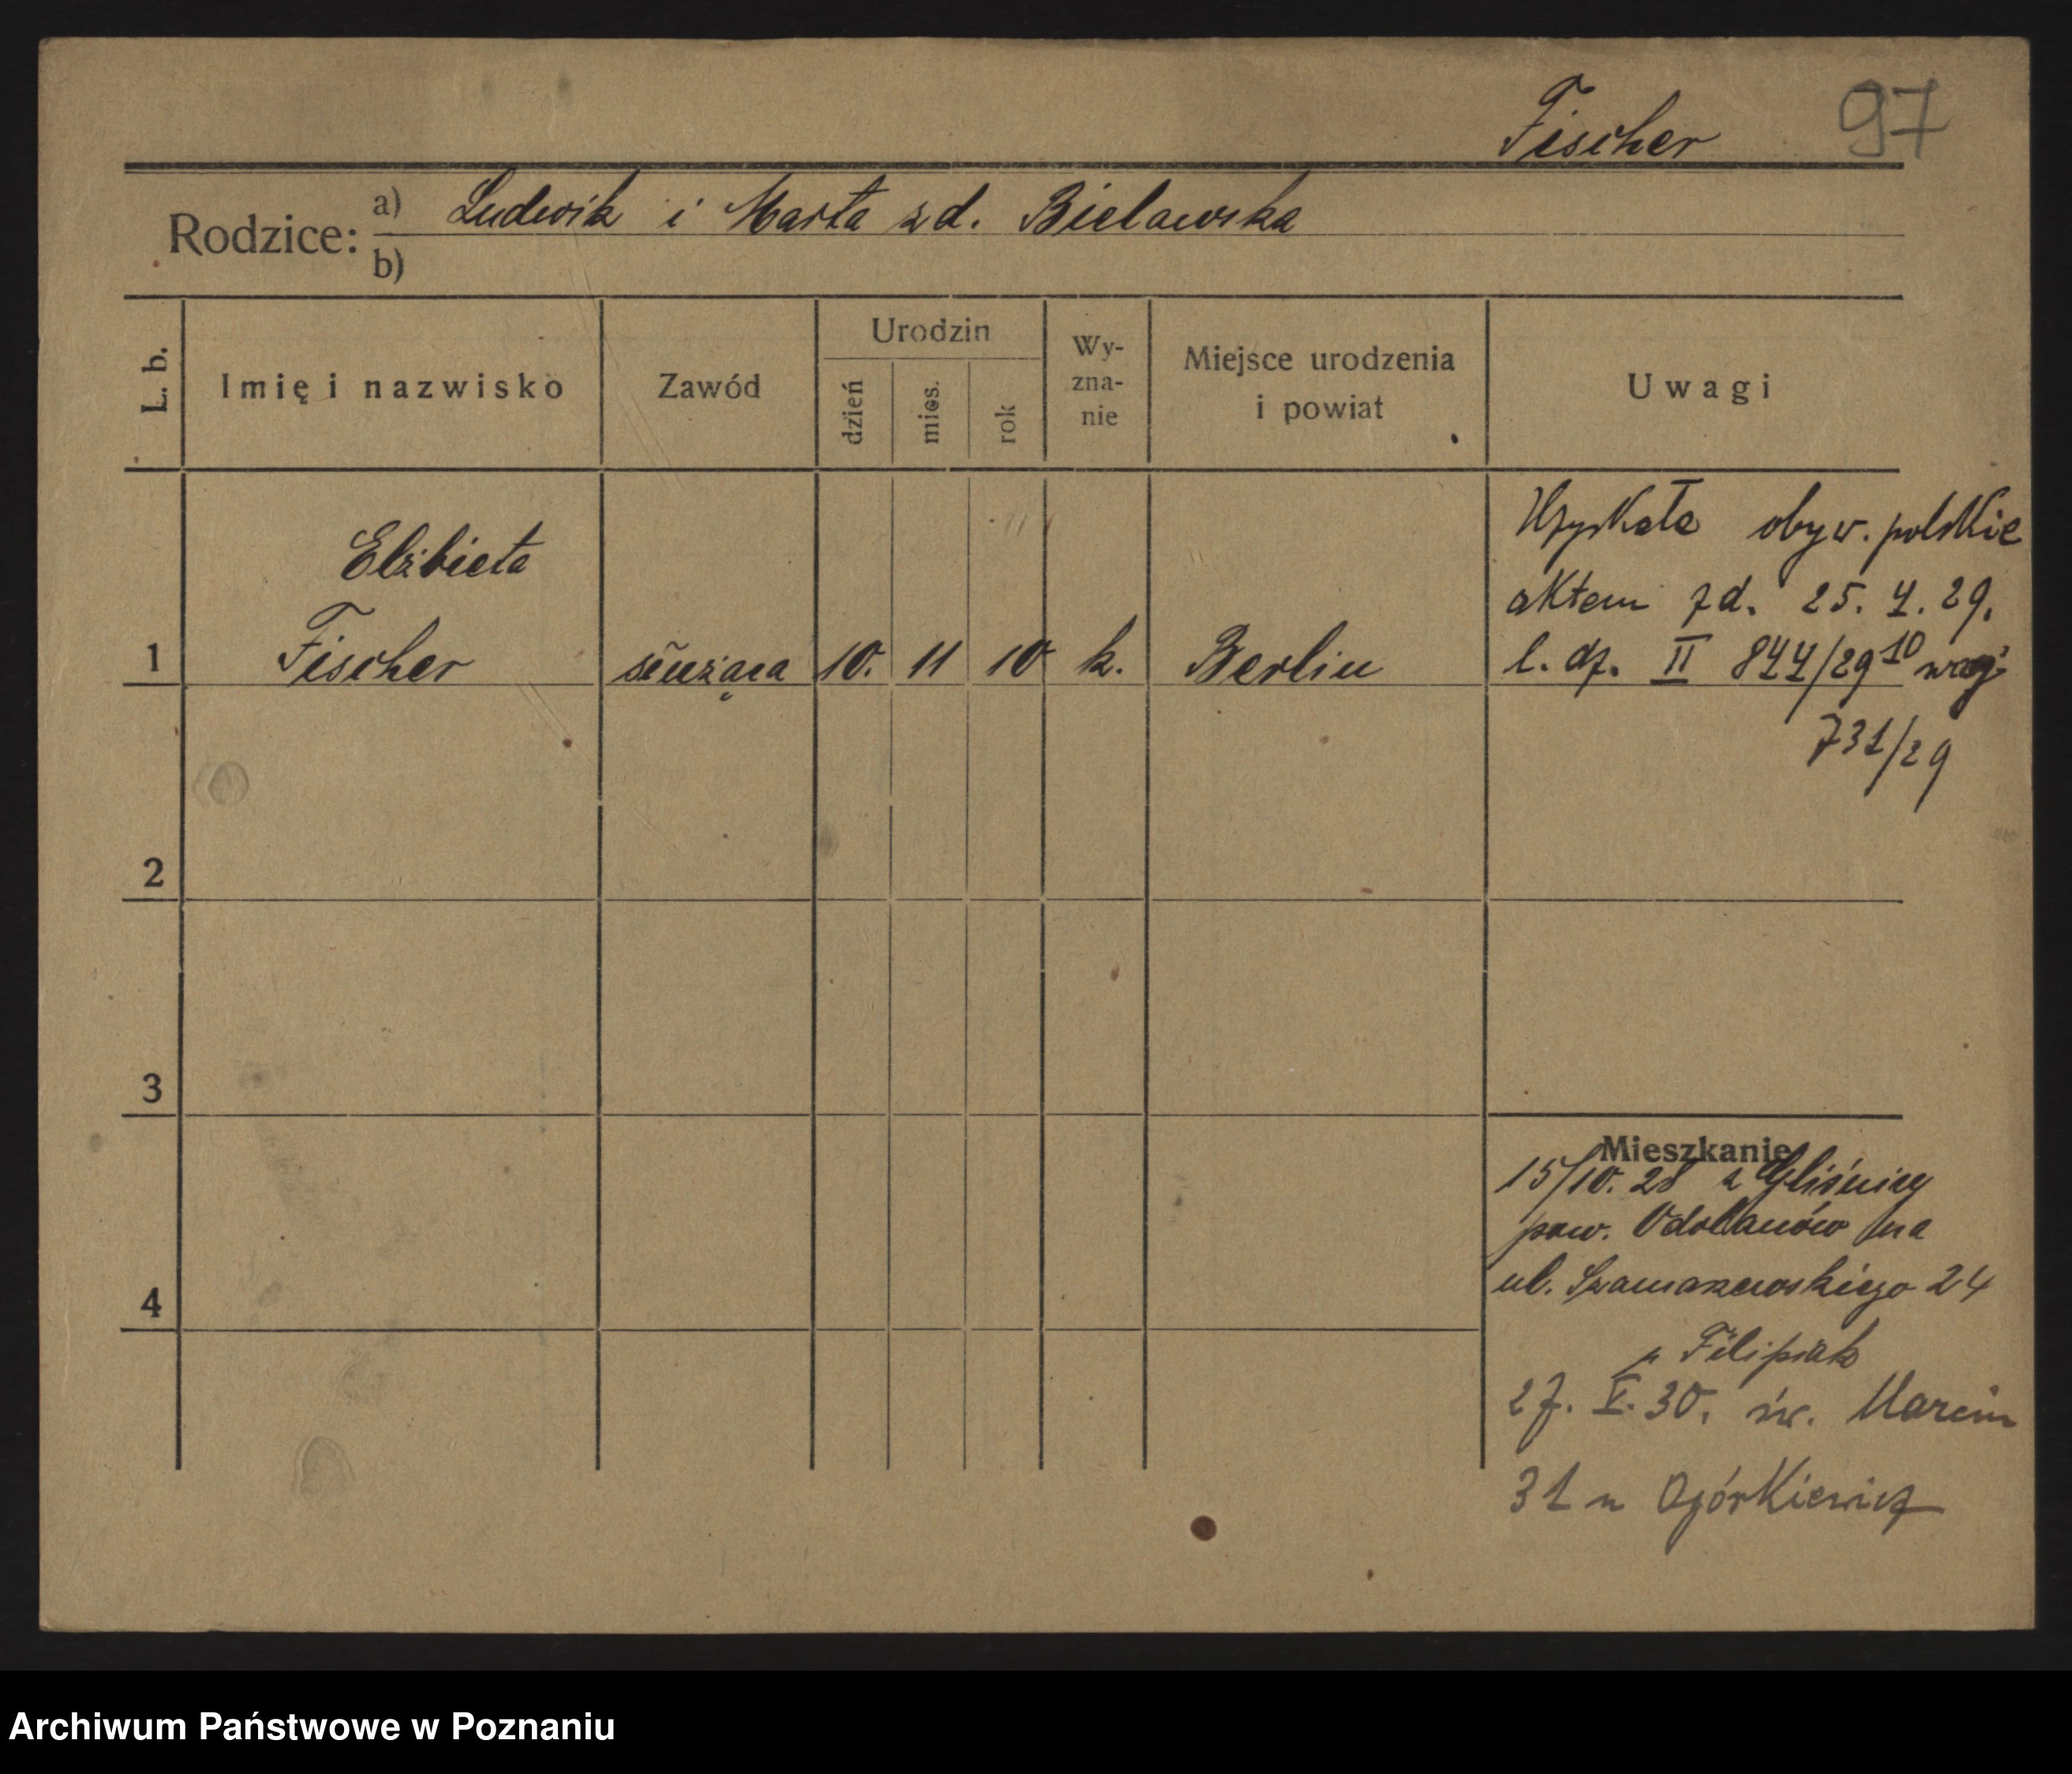 Fischer 97
Rodzice: a) Ludwik i Marta zd. Bielawska
b)
L. b. Imię i nazwisko Zawód Urodzin dzień mies. rok Wy-zna-nie Miejsce urodzenia i powiat Uwagi
Uzyskała obyw. polskie
Elżbieta
aktem z d. 25. 4. 29.
1 Fischer służąca 10. 11 10 k. Berlin l. dz. II 844/29 10
731/29
2
3
Mieszkanie
15/10. 28 z Gliśnicy
pow. Odolanów na
ul. Szamarzewskiego 24
4
u Filipiak
27. V. 30. św. Marcin
31 u Ogórkiewicz
Archiwum Państwowe w Poznaniu